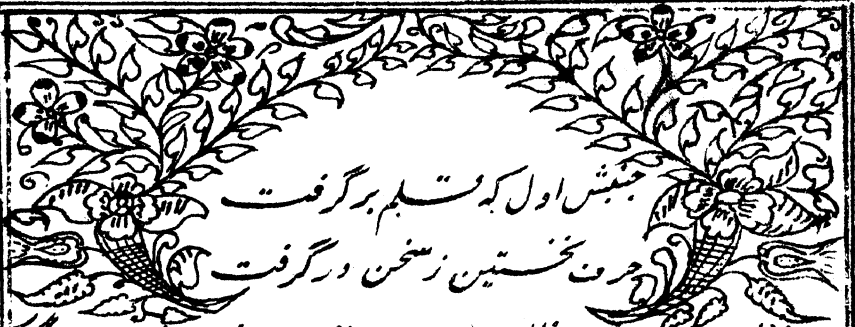 جنبش اول که قلم برگرفت
حرف نخستین ز سخن درگرفت